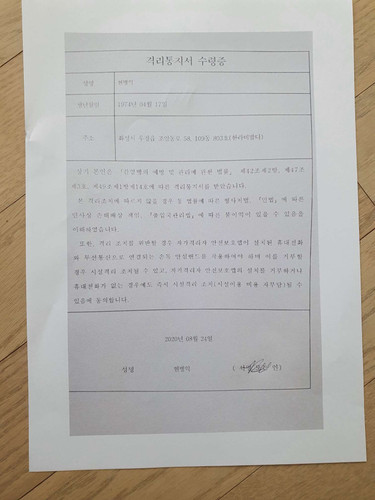 격리통지서 수령증
성명
생년월일 1974년 04월 17일
주소 화성시
상기 본인은 「감염병의 예방 및 관리에 관한 법률」 제42조제2항, 제47조
제3호, 제49조제1항제14호에 따른 격리통지서를 받았습니다.
본 격리조치에 따르지 않을 경우 동 법률에 따른 형사처벌, 「민법」에 따른
민사상 손해배상 책임, 「출입국관리법」에 따른 불이익이 있을 수 있음을
이해하였습니다.
또한, 격리 조치를 위반한 경우 자가격리자 안전보호앱이 설치된 휴대전화
와 무선통신으로 연결되는 손목 안심밴드를 사용하여야 하며 이를 거부할
경우 시설격리 조치될 수 있고, 자가격리자 안전보호앱의 설치를 거부하거나
휴대전화가 없는 경우에도 즉시 시설격리 조치(시설이용 비용 자부담)될 수
있음에 동의합니다.
2020년 09월 21일
성명 (서명 인)